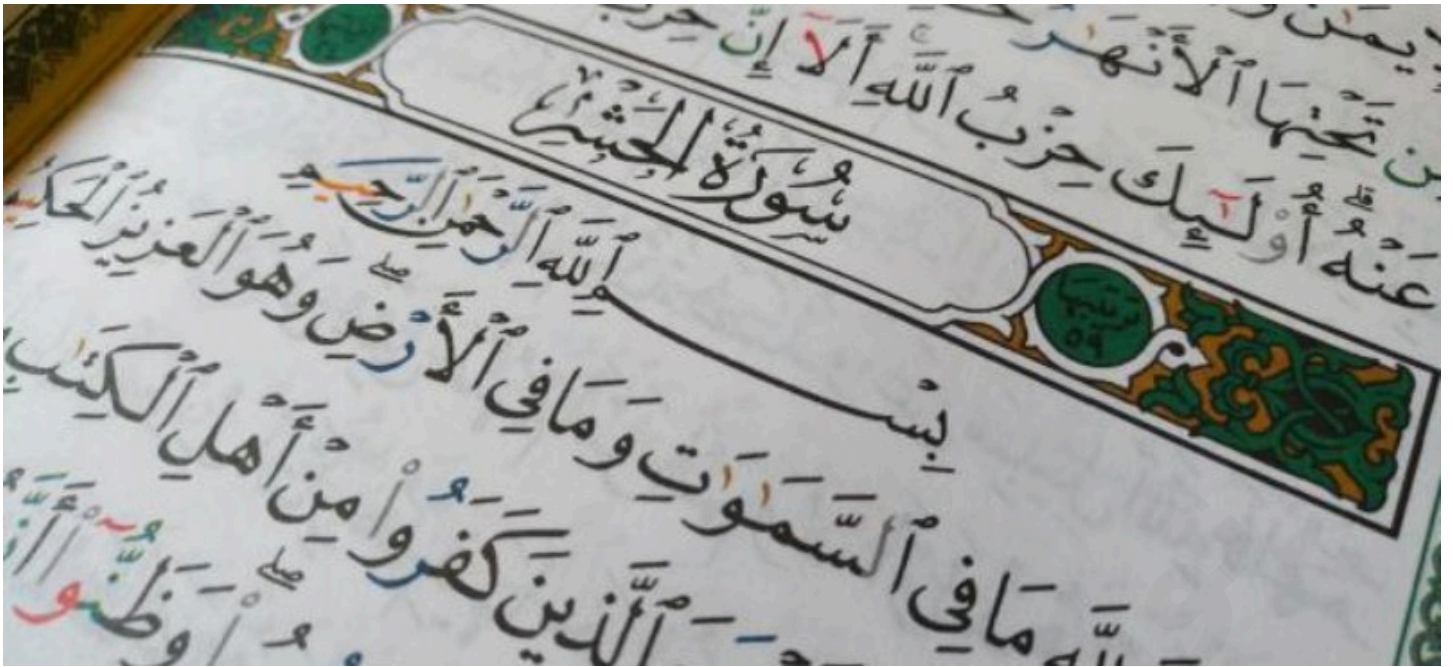 مِن تَحْتِهَا ٱلْأَنْهَٰرُ
عَنْهُۗ أُو۟لَٰٓئِكَ حِزْبُ ٱللَّهِۚ أَلَآ إِنَّ حِزْبَ
سُورَةُ الحَشْرِ
ترتيبها ٥٩
بِسْمِ ٱللَّهِ ٱلرَّحْمَٰنِ ٱلرَّحِيمِ
مَا فِي ٱلسَّمَٰوَٰتِ وَمَا فِي ٱلْأَرْضِۖ وَهُوَ ٱلْعَزِيزُ ٱلْحَكِيمُ
ٱلَّذِينَ كَفَرُوا۟ مِنْ أَهْلِ ٱلْكِتَٰبِ
وَظَنُّوٓا۟